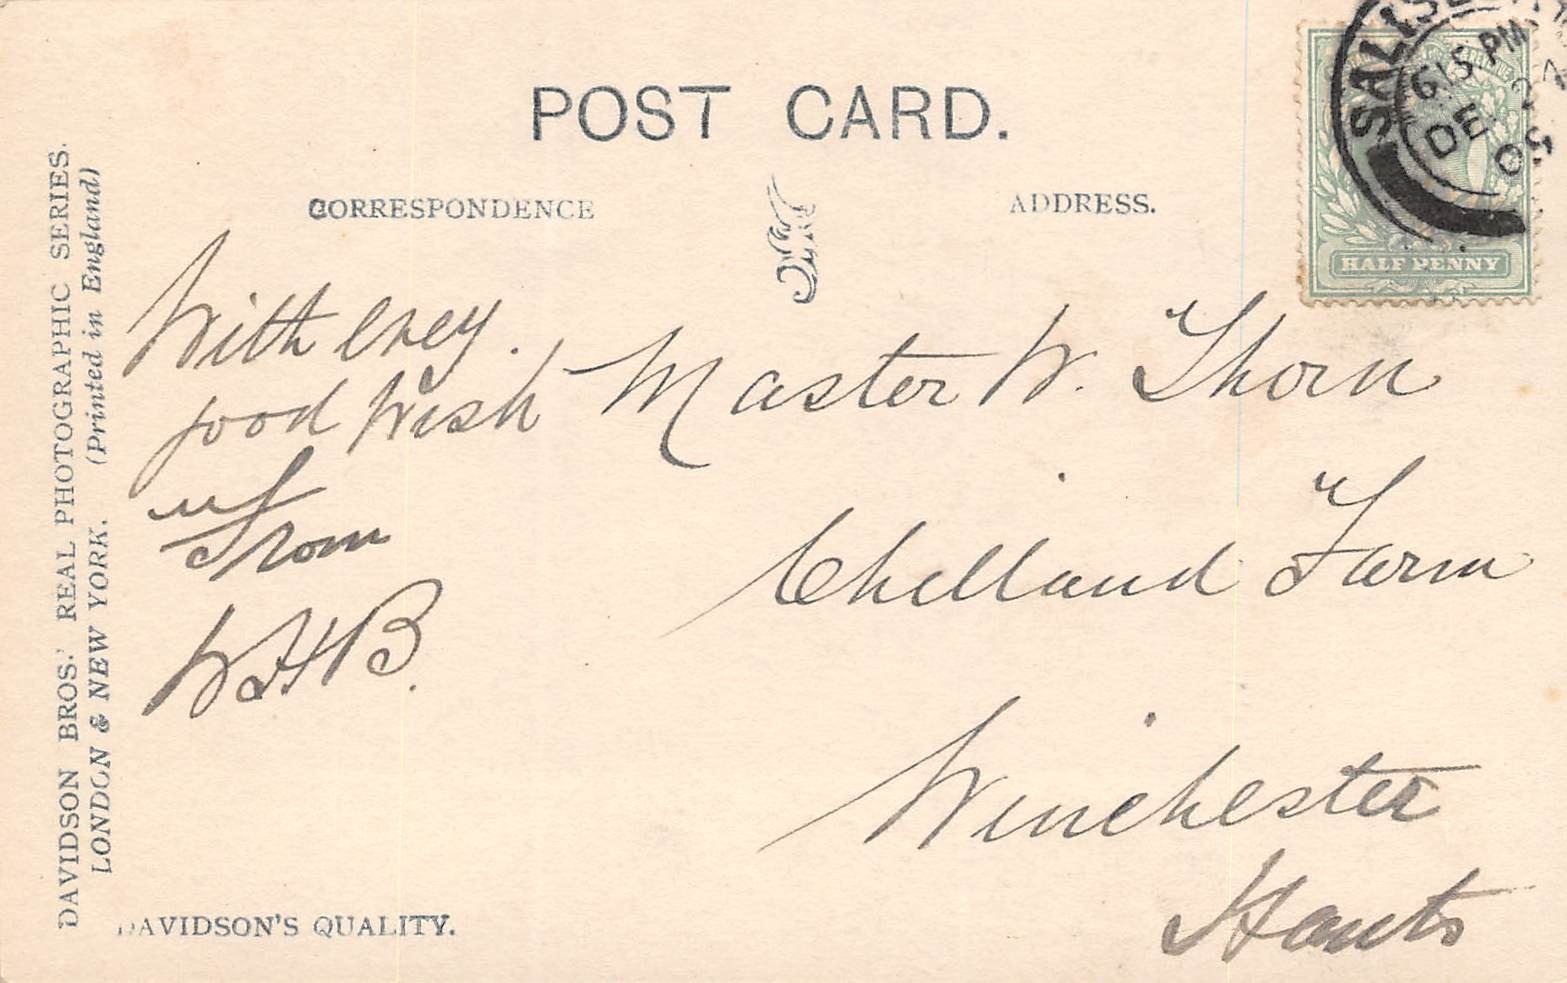 POST CARD.
CORRESPONDENCE
ADDRESS.
SALISB
615 PM
DE 24
05
HALF PENNY
With evey
good Wish
From
WHB.
Master W. Thorn
Chelland Farm
Winchester
Hants
DAVIDSON BROS.' REAL PHOTOGRAPHIC SERIES.
LONDON & NEW YORK. (Printed in England)
DAVIDSON'S QUALITY.